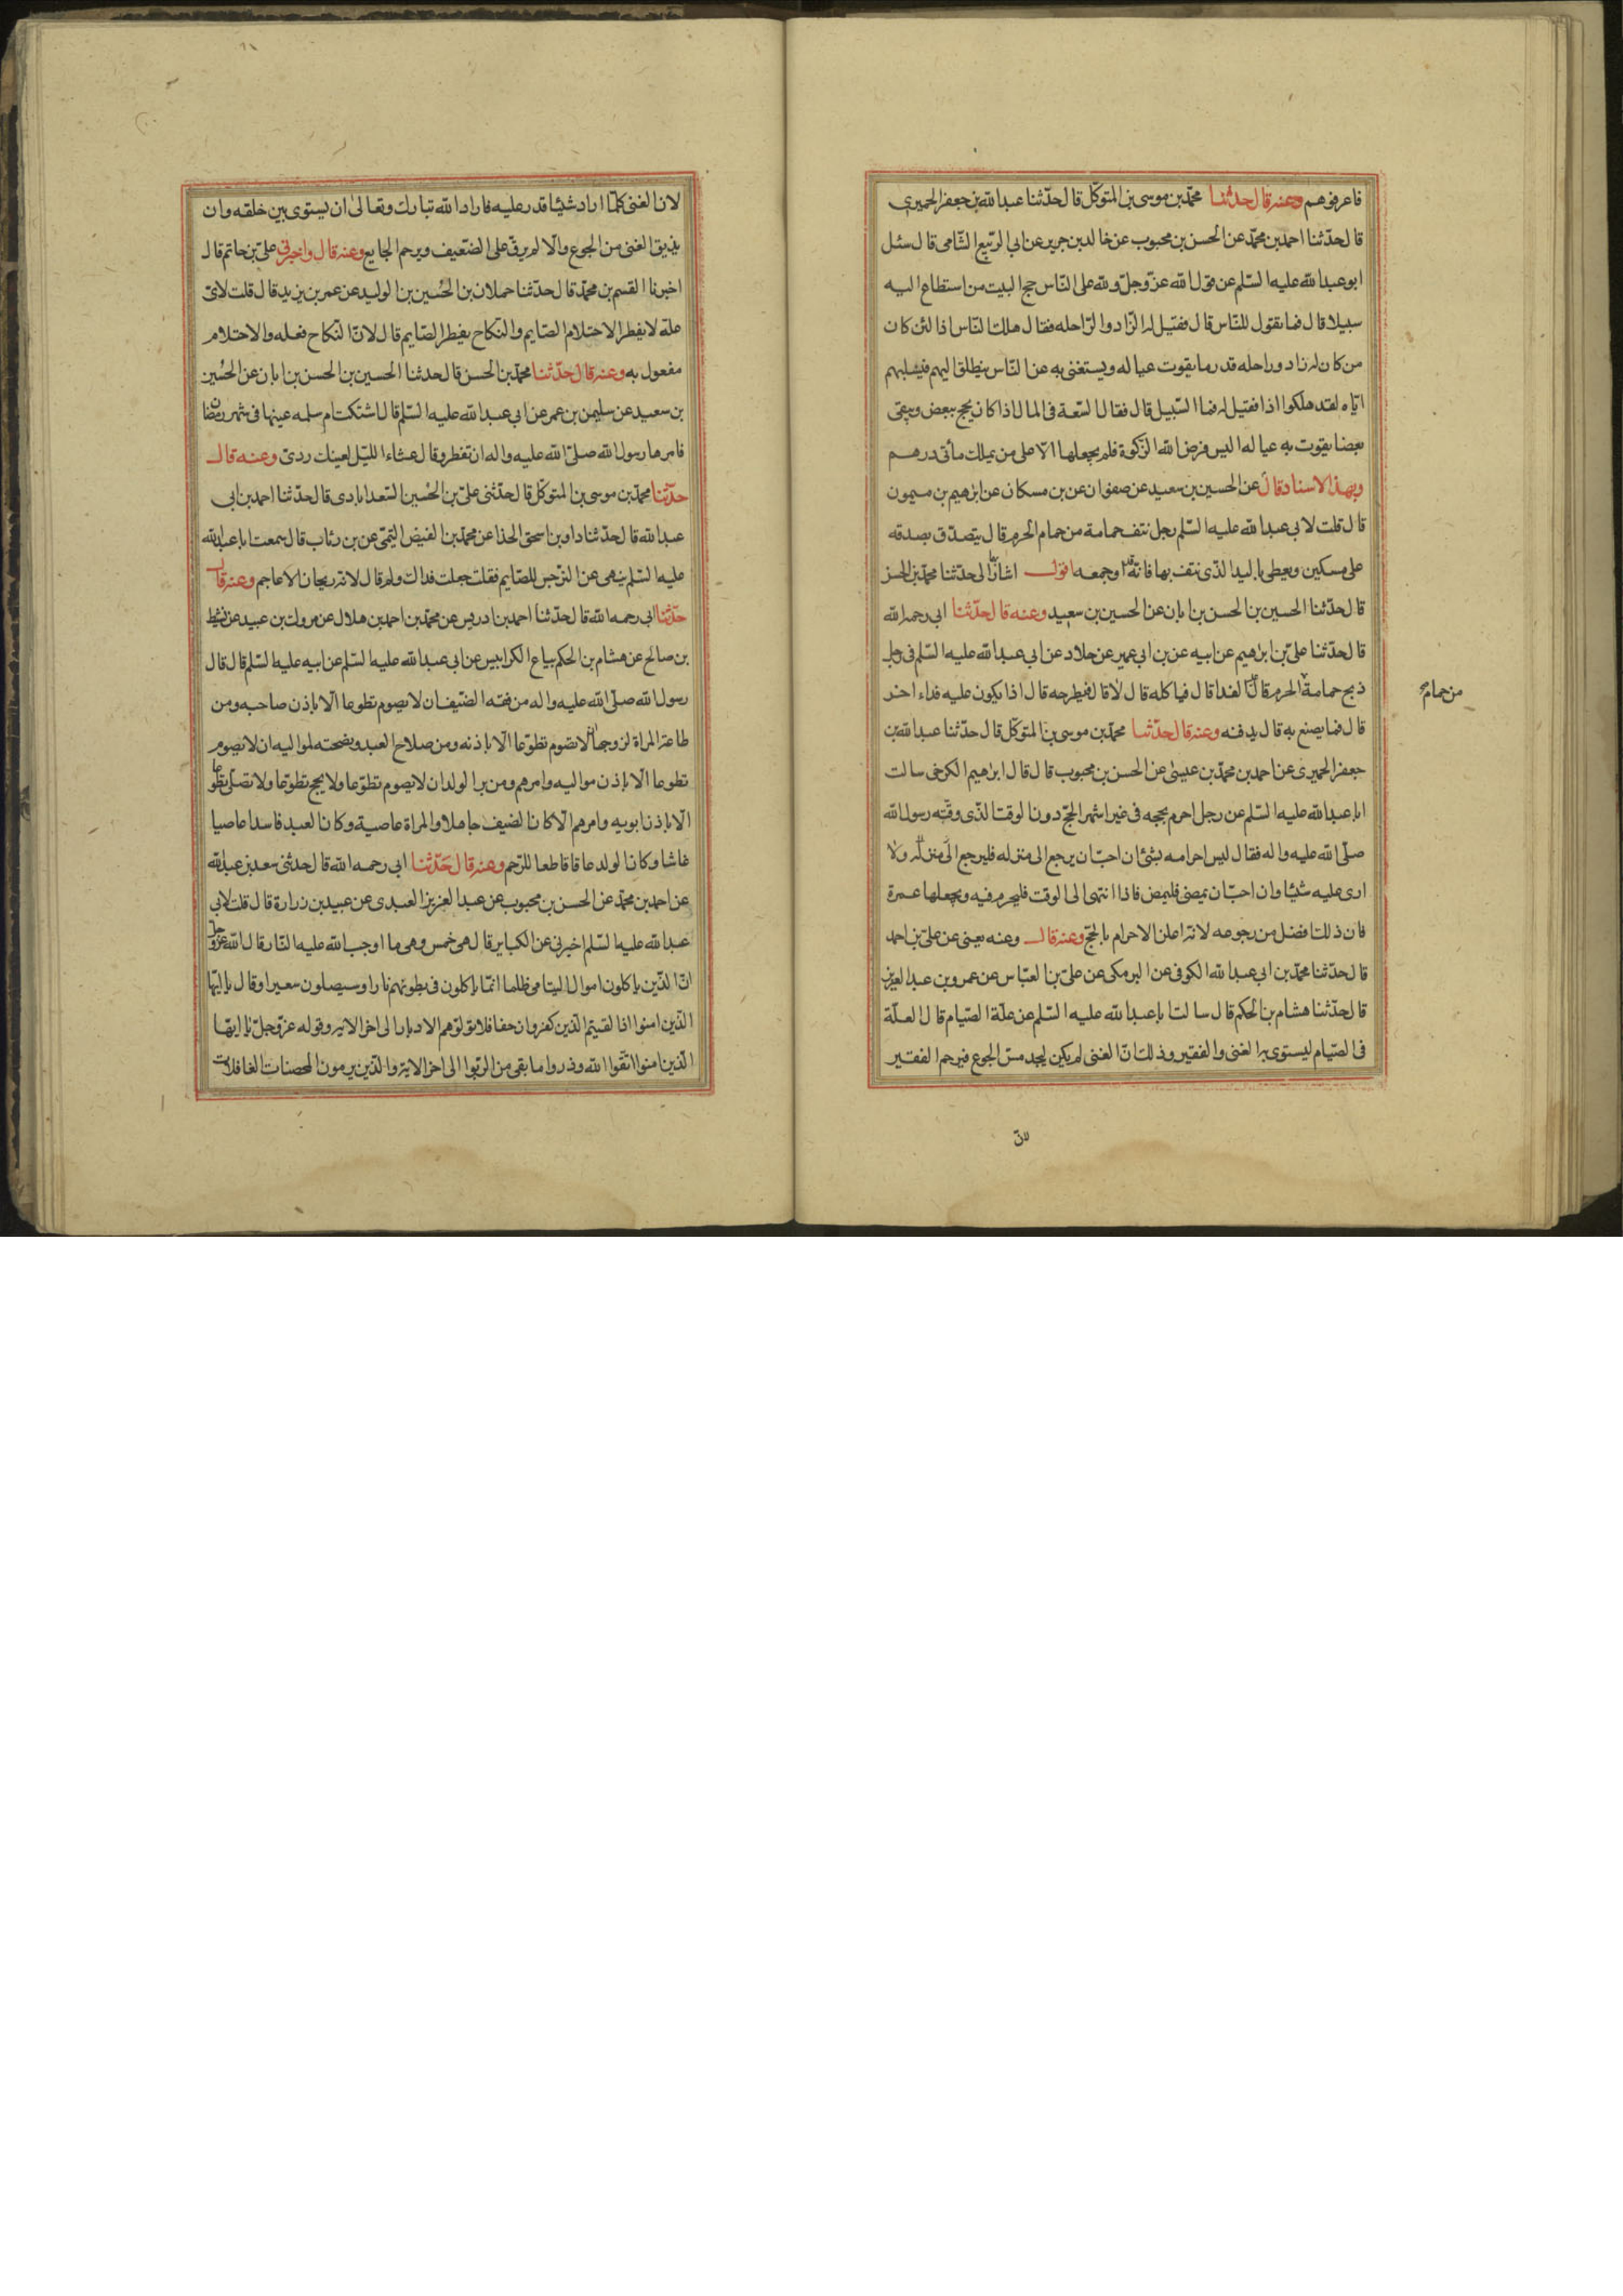 فاعرفوهم وعنه قال حدثنا محمد بن موسى بن المتوكل قال حدثنا عبد الله بن جعفر الحميرى
قال حدثنا احمد بن محمد عن الحسن بن محبوب عن خالد بن جرير عن ابي الربيع الشامى قال سئل
ابو عبد الله عليه السلم عن قول الله عز وجل ولله على الناس حج البيت من استطاع اليه
سبيلا قال فما يقول للناس قال فقيل له الزاد والراحله فقال هلك الناس اذا لئن كان
من كان له زاد وراحله قدر ما يقوت عياله ويستغنى به عن الناس ينطلق اليهم فيسلبهم
اياه لقد هلكوا اذا فقيل له فما السبيل قال فقال السعة في المال اذا كان يحج ببعض ويبقى
بعضا يقوت به عياله اليس فرض الله الزكوة فلم يجعلها الا على من يملك مأتى درهم
وبهذا الاسناد قال عن الحسين بن سعيد عن صفوان عن بن مسكان عن ابرهيم بن ميمون
قال قلت لابي عبد الله عليه السلم رجل نتف حمامة من حمام الحرم قال يتصدق بصدقه
على مسكين ويعطى باليد الذى نتف بها فانه اوجعه اقول اشار الى حدثنا محمد بن الحسن
قال حدثنا الحسين بن الحسن بن ابان عن الحسين بن سعيد وعنه قال حدثنا ابي رحمه الله
قال حدثنا على بن ابرهيم عن ابيه عن بن ابي عمير عن خلاد عن ابي عبد الله عليه السلم في رجل
ذبح حمامة الحرم قال الفدا قال فياكله قال لا قال فيطرحه قال اذا يكون عليه فداء اخر
من حمام صح
قال فما يصنع به قال يدفنه وعنه قال حدثنا محمد بن موسى بن المتوكل قال حدثنا عبد الله بن
جعفر الحميرى عن احمد بن محمد بن عيسى عن الحسن بن محبوب قال قال ابرهيم الكرخى سالت
ابا عبد الله عليه السلم عن رجل احرم بحجه في غير اشهر الحج دون الوقت الذى وقته رسول الله
صلى الله عليه واله فقال ليس احرامه بشئ ان احب ان يرجع الى منزله فليرجع الى منزله ولا
ارى عليه شيئا وان احب ان يمضى فليمض فاذا انتهى الى الوقت فليحرم فيه ويجعلها عمرة
فان ذلك افضل من رجوعه لانه اعلن الاحرام بالحج وعنه قال وعنه يعنى عن على بن احمد
قال حدثنا محمد بن ابي عبد الله الكوفى عن البرمكى عن على بن العباس عن عمرو بن عبد العزيز
قال حدثنا هشام بن الحكم قال سالت ابا عبد الله عليه السلم عن علة الصيام قال العلة
في الصيام ليستوى به الغنى والفقير وذلك ان الغنى لم يكن ليجد مس الجوع فيرحم الفقير
لان
لان الغنى كلما اراد شيئا قدر عليه فاراد الله تبارك وتعالى ان يستوى بين خلقه وان
يذيق الغنى من الجوع والالم يرق على الضعيف ويرحم الجايع وعنه قال واخبرنى على بن حاتم قال
اخبرنا القسم بن محمد قال حدثنا حملان بن الحسين بن الوليد عن عمر بن يزيد قال قلت لاى
علة لا يفطر الاحتلام الصايم والنكاح يفطر الصايم قال لان النكاح فعله والاحتلام
مفعول به وعنه قال حدثنا محمد بن الحسن قال حدثنا الحسين بن الحسن بن ابان عن الحسين
بن سعيد عن سليمن بن عمر عن ابي عبد الله عليه السلم قال اشتكت ام سلمه عينها في شهر رمضان
فامرها رسول الله صلى الله عليه واله ان تفطر وقال عشاء الليل لعينك ردى وعنه قال
حدثنا محمد بن موسى بن المتوكل قال حدثنى على بن الحسين السعدابادى قال حدثنا احمد بن ابى
عبد الله قال حدثنا داود بن اسحق الحذا عن محمد بن الفيض التيمى عن بن رئاب قال سمعت ابا عبد الله
عليه السلم ينهى عن النرجس للصايم فقلت جعلت فداك ولم قال لانه ريحان الاعاجم وعنه قال
حدثنا ابي رحمه الله قال حدثنا احمد بن ادريس عن محمد بن احمد بن هلال عن مروك بن عبيد عن نشيط
بن صالح عن هشام بن الحكم بياع الكرابيس عن ابى عبد الله عليه السلم عن ابيه عليه السلم قال قال
رسول الله صلى الله عليه واله من فقه الضيف ان لا يصوم تطوعا الا باذن صاحبه ومن
طاعة المراة لزوجها ان لا تصوم تطوعا الا باذنه ومن صلاح العبد ونصحته لمواليه ان لا يصوم
تطوعا الا باذن مواليه وامرهم ومن بر الولد ان لا يصوم تطوعا ولا يحج تطوعا ولا تصلى تطوعا
الا باذن ابويه وامرهم الا كان الضيف جاهلا والمراة عاصية وكان العبد فاسدا عاصيا
غاشا وكان الولد عاقا قاطعا للرحم وعنه قال حدثنا ابي رحمه الله قال حدثنى سعد بن عبد الله
عن احمد بن محمد عن الحسن بن محبوب عن عبد العزيز العبدى عن عبيد بن زرارة قال قلت لابي
عبد الله عليه السلم اخبرنى عن الكباير قال هى خمس وهى ما اوجب الله عليه النار قال الله عز وجل
ان الذين ياكلون اموال اليتامى ظلما انما ياكلون فى بطونهم نارا وسيصلون سعيرا وقال يا ايها
الذين امنوا اذا لقيتم الذين كفروا زحفا فلا تولوهم الادبار الى اخر الايه وقوله عز وجل يا ايها
الذين امنوا اتقوا الله وذروا ما بقى من الربوا الى اخر الاية والذين يرمون المحصنات الغافلات